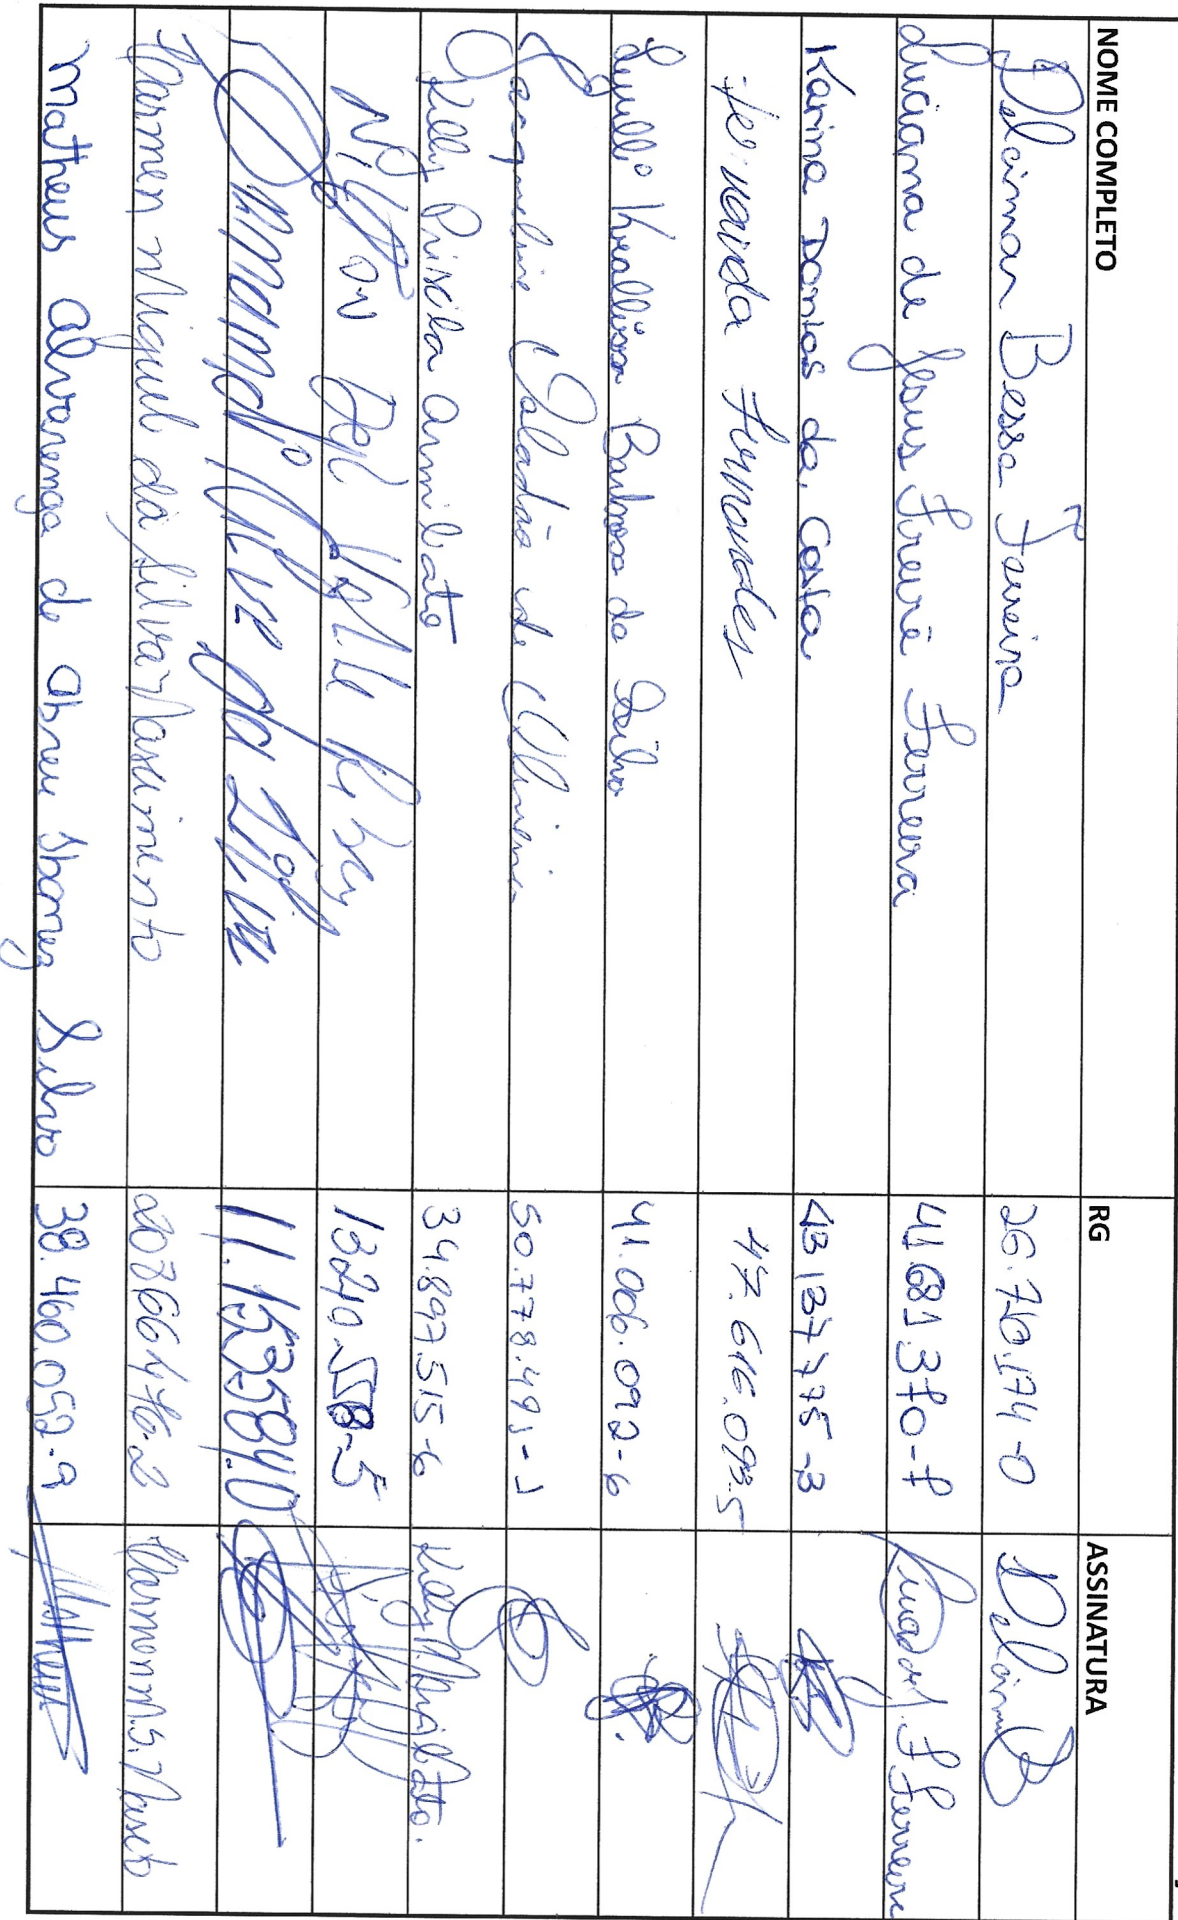 NOME COMPLETO RG ASSINATURA
Delcimar Bessa Ferreira 26.710.174-0 Delcimar
Luciana de Jesus Freire Ferreira 41.681.370-7 Luciana d J. F Ferreira
Karina Damios da Costa 43 137 775-3
Fernanda Fernandes 47.616.093.5
Barbosa da Silva 41.006.092-6
Jacqueline Valadão de Oliveira 50.778.491-1
Kelly Priscila Armilato 34.897.515-6 Kelly P. Armilato.
Nilton Del 13240.558-5
da Silva 11.153584.0
Carmen Miguel da Silva Nascimento 20866476-2 Carmen M. S. Nascto
Matheus Alvarenga de Abreu Silva 38.460.052-9 Matheus